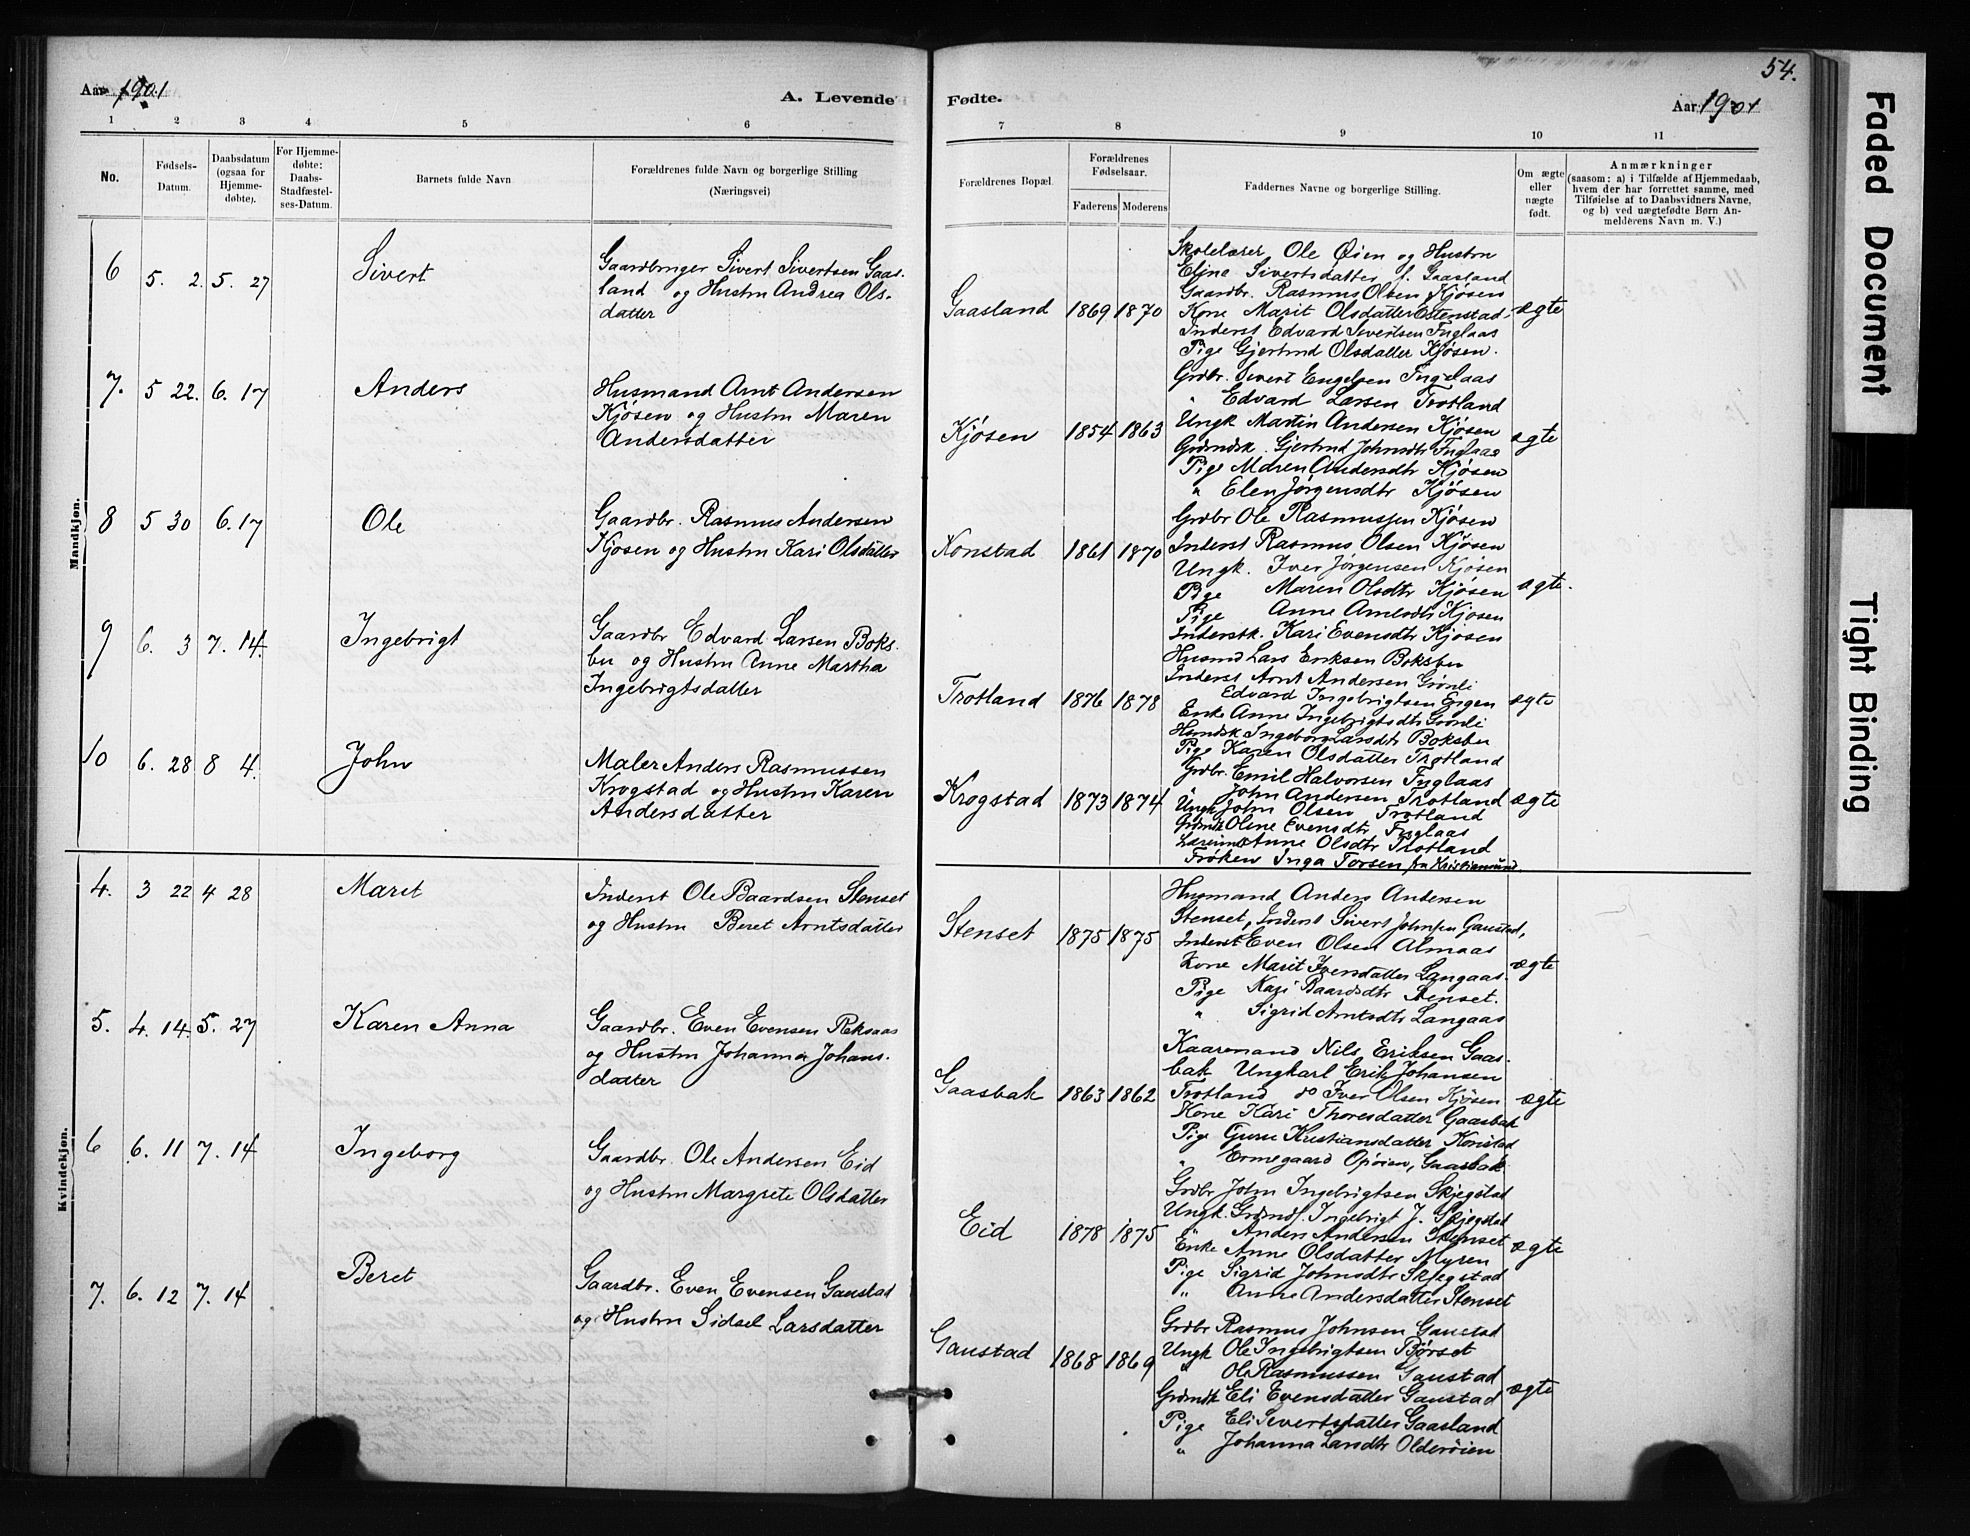 54.
Aar 1901
A. Levende Fødte.
Aar 1901
1 2 3 4 5 6 7 8 9 10 11
No.
Fødsels-Datum.
Daabsdatum (ogsaa for Hjemme-døbte).
For Hjemme-døbte: Daabs-Stadfæstel-ses-Datum.
Barnets fulde Navn
Forældrenes fulde Navn og borgerlige Stilling (Næringsvei)
Forældrenes Bopæl.
Forældrenes Fødselsaar.
Faderens Moderens
Faddernes Navne og borgerlige Stilling.
Om ægte eller uægte født.
Anmærkninger
(saasom: a) i Tilfælde af Hjemmedaab, hvem der har forrettet samme, med Tilføielse af to Daabsvidners Navne, og b) ved uægtefødte Børn An-melderens Navn m. V.)
Mandkjøn.
6 5. 2. 5. 27 Sivert
Gaardbruger Sivert Sivertsen Gaas-
land og Hustru Andrea Ols-
datter
Gaasland 1869 1870
Skolelærer Ole Øien og Hustru
Elina Sivertsdatter f. Gaasland
Gaardbr. Rasmus Olsen Kjøsen
Kone Marit Olsdatter Estenstad
Inderst Edvard Sivertsen Fuglaas
Pige Gjertrud Olsdatter Kjøsen.
ægte
7. 5 22. 6. 17 Anders
Husmand Arnt Andersen
Kjøsen og Hustru Maren
Andersdatter
Kjøsen 1854 1863
Grdbr. Sivert Engelsen Fuglaas
" Edvard Larsen Trotland
Ungk Martin Andersen Kjøsen
Grdmdsk. Gjertrud Johnsdtr Fuglaas
Pige Maren Andersdtr Kjøsen
" Elen Jørgensdtr Kjøsen
ægte
8 5 30 6. 17 Ole
Gaardbr. Rasmus Andersen
Kjøsen og Hustru Kari Olsdatter
Konstad 1861 1870
Grdbr Ole Rasmussen Kjøsen
Inderst Rasmus Olsen Kjøsen
Ungk. Iver Jørgensen Kjøsen
Pige Maren Olsdtr Kjøsen
Pige Anne Arntsdtr Kjøsen
Inderstk. Kari Evensdtr Kjøsen
ægte.
9 6. 3 7. 14. Ingebrigt
Gaardbr Edvard Larsen Boks-
bu og Hustru Anne Martha
Ingebrigtsdatter
Trotland 1876 1878
Husmd Lars Eriksen Boksbu
Inderst Arnt Andersen Grønli
Edvard Ingebrigtsen Engen
Enke Anne Ingebrigtsdtr Grønli
Hsmdsk Ingeborg Larsdtr Boksbu
Pige Karen Olsdatter Trotland
ægte
10 6. 28 8 4. John
Maler Anders Rasmussen
Krogstad og Hustru Karen
Andersdatter
Krogstad 1873 1874
Grdbr. Emil Halvorsen Fuglaas
" John Andersen Trotland
Ungk John Olsen Trotland
Grdmdsk Oline Evensdtr Fuglaas
Lærerinde Anne Olsdtr Trotland
Frøken Inga Torsen fra Kristiansund.
ægte
Kvindekjøn.
4. 3 22 4 28 Maret
Inderst Ole Baardsen Stenset
og Hustru Beret Arntsdatter
Stenset 1875 1875
Husmand Anders Andersen
Stenset, Inderst Sivert Johnsen Gaustad,
Inderst Even Olsen Almaas
Kone Marit Iversdatter Langaas.
Pige Kari Baardsdtr Stenset.
" Sigrid Arntsdtr Langaas
ægte
5. 4. 14. 5. 27 Karen Anna
Gaardbr. Even Evensen Reksaas
og Hustru Johanna Johans-
datter
Gaasbak 1863 1862
Kaarmand Nils Eriksen Gaas-
bak Ungkarl Erik Johansen
Trotland do Iver Olsen Kjøsen
Kone Kari Thoresdatter Gaasbak
Pige Guru Kristiansdatter Konstad
" Ermegaard Opøien, Gaasbak
ægte
6 6. 11 7. 14 Ingeborg
Gaardbr. Ole Andersen Eid
og Hustru Margrete Olsdatter
Eid 1878 1875
Grdbr John Ingebrigtsen Skjegstad
Ungk. Grdmds. Ingebrigt J. Skjegstad
" Anders Andersen Stenset
Enke Anne Olsdatter Myren
Pige Sigrid Johnsdtr Skjegstad
" Anne Andersdatter Stenset
ægte
7. 6. 12 7. 14 Beret
Gaardbr. Even Evensen Gaustad
og Hustru Sidsel Larsdatter
Gaustad 1868 1869
Grdbr Rasmus Johnsen Gaustad
Ungk Ole Ingebrigtsen Bjørset
" Ole Rasmussen Gaustad
Grdmdsk Eli Evensdatter Gaustad
Pige Eli Sivertsdatter Gaasland
" Johanna Larsdtr Olderøien
ægte
Faded Document
Tight Binding